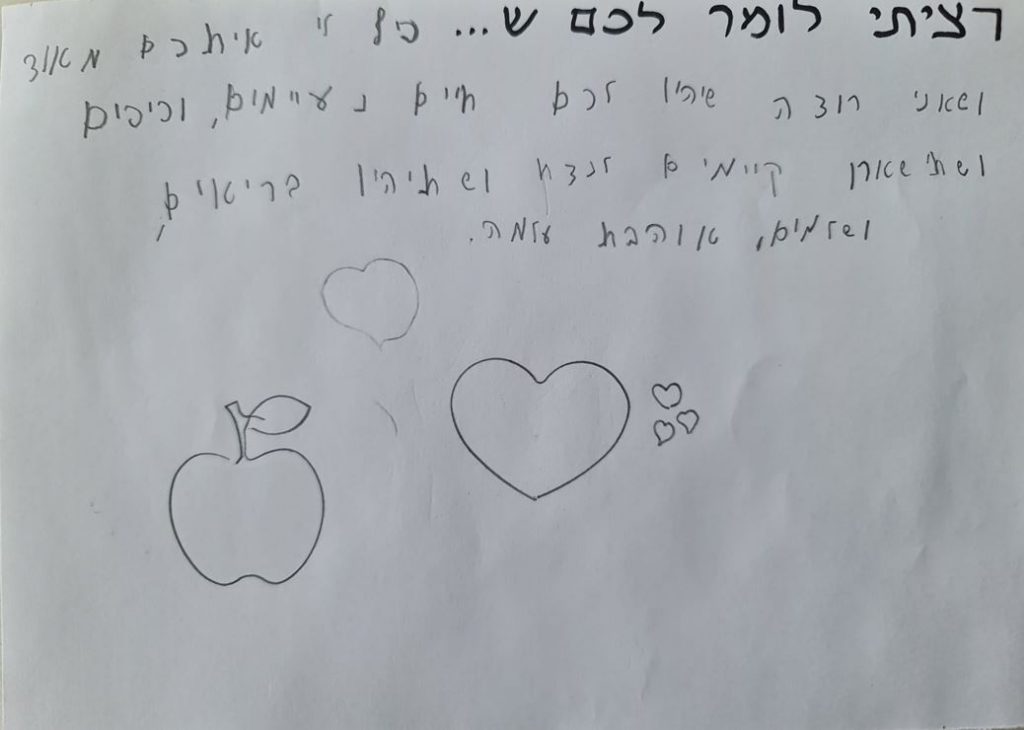 רציתי לומר לכם ש... כיף לי איתכם מאוד
ושאני רוצה שיהיו לכם חיים נעיימים, וכיפים
ושתישארו קיימים לנצח ושתיהיו בריאים,
ושלמים, אוהבת עלמה.